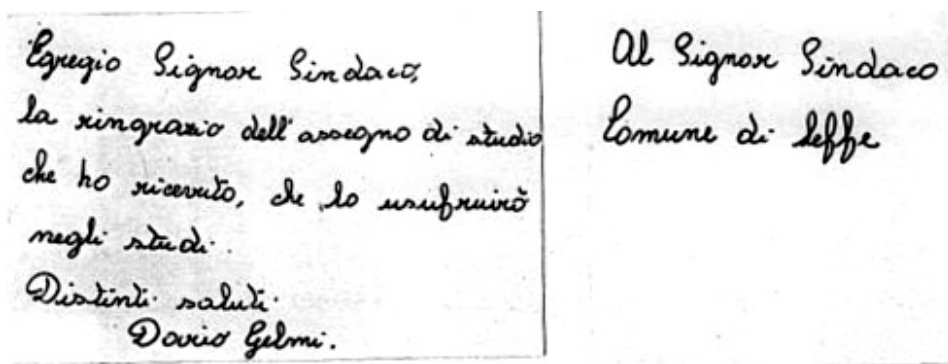 Egregio Signor Sindaco,
la ringrazio dell'assegno di studio
che ho ricevuto, che lo usufruirò
negli studi.
Distinti saluti.
Dario Gelmi.
Al Signor Sindaco
Comune di Leffe